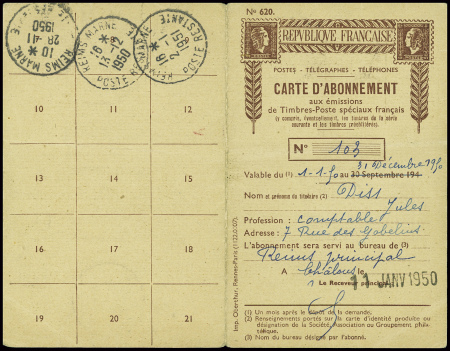 REIMS MARNE
10 *
28-4
1950
REIMS MARNE
16 *
13-12
1950
POSTE RESTANTE
REIMS MARNE
16 *
2-1
1951
POSTE RESTANTE
10 11 12
13 14 15
16 17 18
19 20 21
Imp. Oberthur, Rennes-Paris
N° 620.
RÉPVBLIQVE FRANÇAISE
POSTES - TÉLÉGRAPHES - TÉLÉPHONES
CARTE D'ABONNEMENT
aux émissions
de Timbres-Poste spéciaux français
(y compris, éventuellement, les timbres de la série
courante et les timbres préoblitérés).
N° 103
31 Décembre 1950
Valable du (1) 1-1-50 au 30 Septembre 194
Nom et prénoms du titulaire (2) Diss
Jules
Profession : comptable
Adresse : 7 Rue des Gobelins
L'abonnement sera servi au bureau de (3)
Reims principal
A Châlons le 11 JANV 1950
Le Receveur principal
(1) Un mois après le dépôt de la demande.
(2) Renseignements portés sur la carte d'identité produite ou
désignation de la Société, Association ou Groupement phila-
télique.
(3) Nom du bureau désigné par l'abonné.